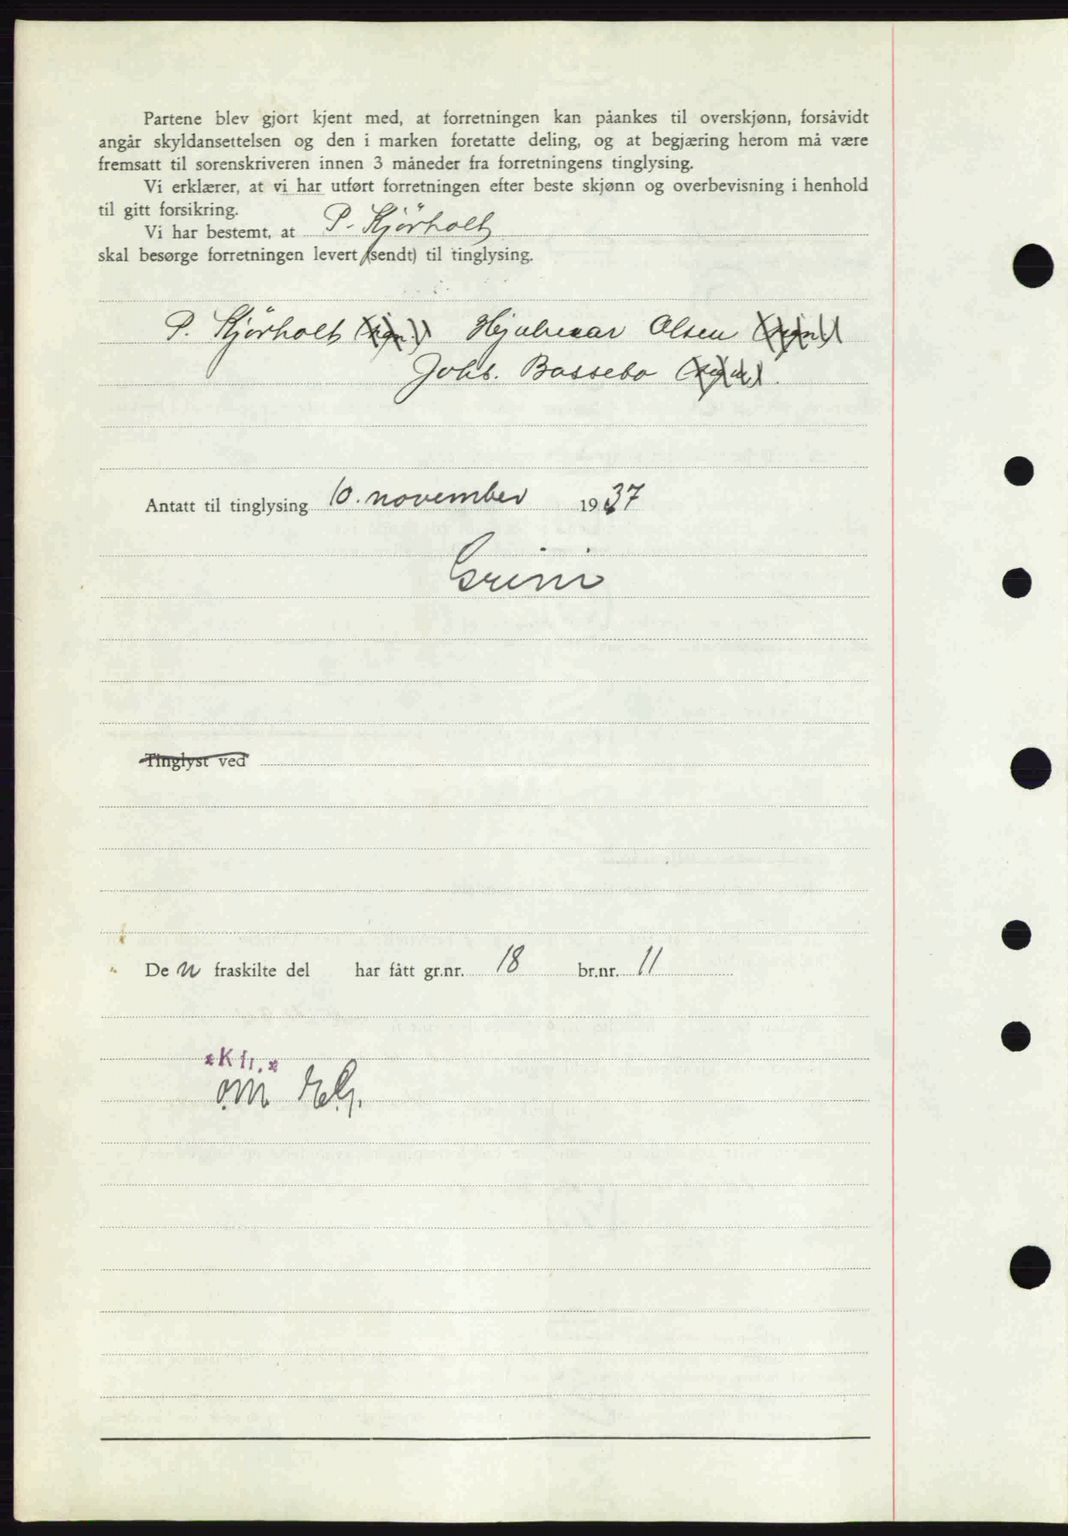 Partene blev gjort kjent med, at forretningen kan påankes til overskjønn, forsåvidt
angår skyldansettelsen og den i marken foretatte deling, og at begjæring herom må være
fremsatt til sorenskriveren innen 3 måneder fra forretningens tinglysing.
Vi erklærer, at vi har utført forretningen efter beste skjønn og overbevisning i henhold
til gitt forsikring.
Vi har bestemt, at P. Kjörholt
skal besørge forretningen levert (sendt) til tinglysing.
P. Kjörholt (sign.) Hjalmar Olsen (sign.)
Johs. Bassebo (sign.).
Antatt til tinglysing 10. november 1937
Grini
Tinglyst ved
De n fraskilte del har fått gr.nr. 18 br.nr. 11
*K fl.*